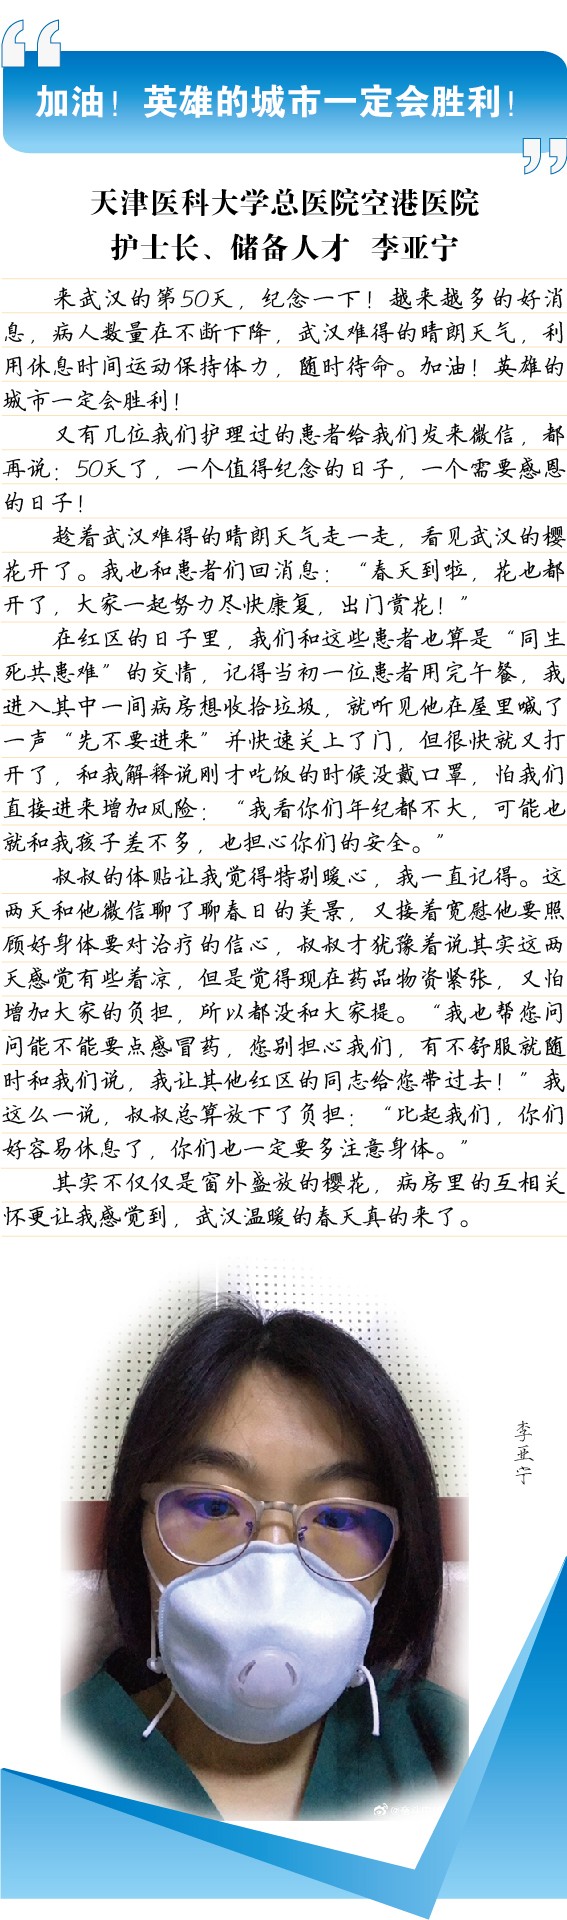 加油！英雄的城市一定会胜利！
天津医科大学总医院空港医院
护士长、储备人才 李亚宁
来武汉的第50天，纪念一下！越来越多的好消
息，病人数量在不断下降，武汉难得的晴朗天气，利
用休息时间运动保持体力，随时待命。加油！英雄的
城市一定会胜利！
又有几位我们护理过的患者给我们发来微信，都
再说：50天了，一个值得纪念的日子，一个需要感恩
的日子！
趁着武汉难得的晴朗天气走一走，看见武汉的樱
花开了。我也和患者们回消息：“春天到啦，花也都
开了，大家一起努力尽快康复，出门赏花！”
在红区的日子里，我们和这些患者也算是“同生
死共患难”的交情，记得当初一位患者用完午餐，我
进入其中一间病房想收拾垃圾，就听见他在屋里喊了
一声“先不要进来”并快速关上了门，但很快就又打
开了，和我解释说刚才吃饭的时候没戴口罩，怕我们
直接进来增加风险：“我看你们年纪都不大，可能也
就和我孩子差不多，也担心你们的安全。”
叔叔的体贴让我觉得特别暖心，我一直记得。这
两天和他微信聊了聊春日的美景，又接着宽慰他要照
顾好身体要对治疗的信心，叔叔才犹豫着说其实这两
天感觉有些着凉，但是觉得现在药品物资紧张，又怕
增加大家的负担，所以都没和大家提。“我也帮您问
问能不能要点感冒药，您别担心我们，有不舒服就随
时和我们说，我让其他红区的同志给您带过去！”我
这么一说，叔叔总算放下了负担：“比起我们，你们
好容易休息了，你们也一定要多注意身体。”
其实不仅仅是窗外盛放的樱花，病房里的互相关
怀更让我感觉到，武汉温暖的春天真的来了。
李亚宁